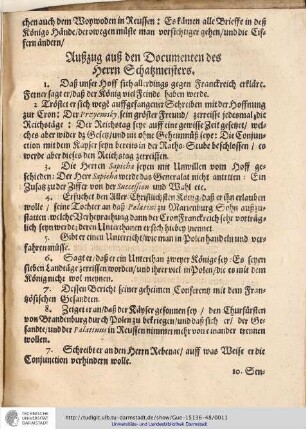 chen auch dem Woywoden in Reussen: Es kämen alle Brieffe in deß
Königs Hände/ derowegen müste man vorsichtiger gehen/ und die Cif-
fern ändern/
Außzug auß den Documenten des
Herrn Schatzmeisters.
1. Daß unser Hoff sich allerdings gegen Franckreich erkläre.
Ferner sagt er/ daß der König viel Feinde haben werde.
2 Tröstet er sich wegē auffgefangener Schreiben mit der Hoffnung
zur Cron: Der Przyemsky sein gröster Freund/ zerreisse jedesmal die
Reichstäge: Der Reichstag seye auff eine gewisse Zeit gesetzt/ wel-
ches aber wider dz Gesetz/ und nit ohne Geheimnüß seye: Die Conjun-
ction mit dem Kayser seyn bereits in der Raths-Stube beschlossen/ es
werde aber dieses den Reichstag zerreissen.
3. Die Herren Sapieha seyen mit Unwillen vom Hoff ge-
schieden: Der Herr Sapieha werde das Generalat nicht antretten: Ein
Zusatz zu der Ziffer von der Succession und Wahl etc.
4. Ersuchet den Aller Christlichstē König/ daß er ihn erlauben
wolle/ seine Tochter an daß Palatini zu Marienburg Sohn außzu-
statten/ welche Verheurathung dann der Cron Franckreich sehr vorträg-
lich seyn werde; deren Unterthanen er sich hiebey nennet.
5. Gibt er einen Unterricht/ wie man in Polen handeln und ver-
fahren müsse.
6. Sagt er/ daß er ein Unterthan zweyer Könige sey: Es seyen
sieben Landtäge zerrissen worden/ und ihrer viel in Polen/ die es mit dem
König nicht wol meynen.
7. Dessen Bericht seiner geheimen Conferentz mit dem Fran-
tzösischen Gesandten.
8. Zeiget er an/ daß der Käyser gesonnen sey/ den Churfürsten
von Brandenburg durch Polen zu bekriegen/ und daß sich er/ der Ge-
sandte/ und der Palatinus in Reussen nimmermehr von einander trennen
wollen.
7. Schreibt er an den Herrn Rebenac/ auff was Weise er die
Conjunction verhindern wolle.
10. Sen-
TECHNISCHE
UNIVERSITÄT
DARMSTADT
http://tudigit.ulb.tu-darmstadt.de/show/Gue-15136-48/0011
Universitäts- und Landesbibliothek Darmstadt